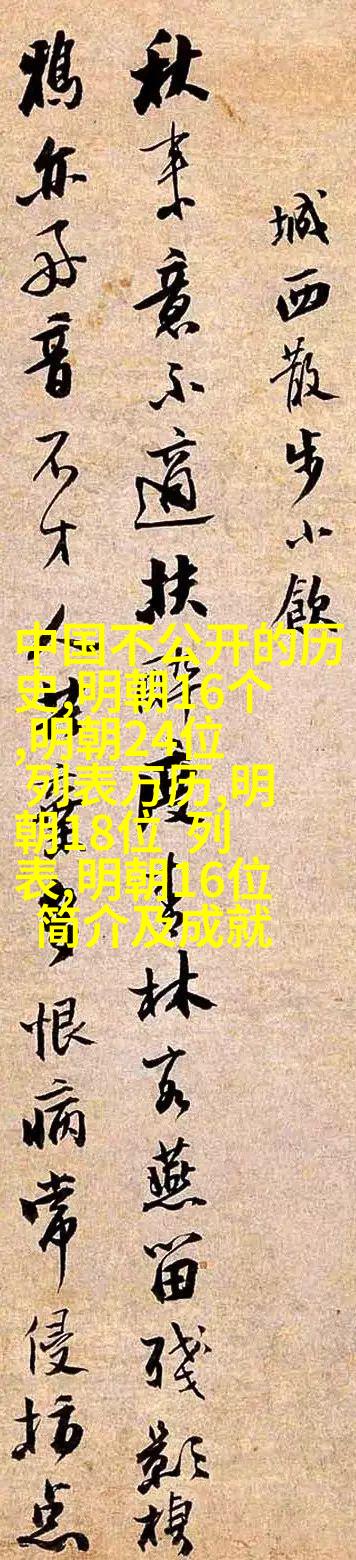 城西散步小飲
秋来意不適扶醉青林客燕留殘影棲
鴉亦好音不才人恨病常侵点
中国不公开的历
史,明朝16个
,明朝24位
列表万历,明
朝18位 列
表,明朝16位
简介及成就